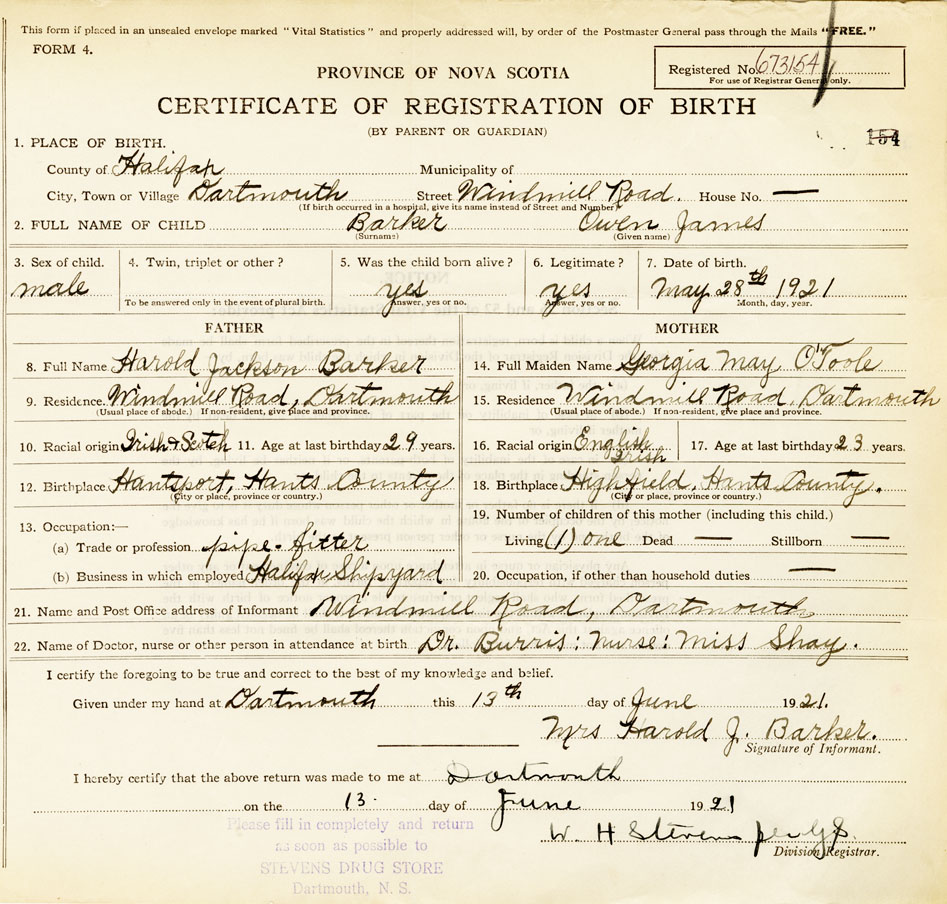 This form if placed in an unsealed envelope marked "Vital Statistics" and properly addressed will, by order of the Postmaster General pass through the Mails "FREE."
FORM 4.
Registered No. 673154
For use of Registrar General only.
PROVINCE OF NOVA SCOTIA
CERTIFICATE OF REGISTRATION OF BIRTH
(BY PARENT OR GUARDIAN)
154
1. PLACE OF BIRTH.
County of Halifax Municipality of
City, Town or Village Dartmouth Street Windmill Road. House No. —
(If birth occurred in a hospital, give its name instead of Street and Number)
2. FULL NAME OF CHILD Barker Owen James
(Surname) (Given name)
3. Sex of child. 4. Twin, triplet or other? 5. Was the child born alive? 6. Legitimate? 7. Date of birth.
male yes yes May 28th 1921
To be answered only in the event of plural birth. Answer, yes or no. Answer, yes or no. Month, day, year.
FATHER MOTHER
8. Full Name Harold Jackson Barker 14. Full Maiden Name Georgia May O'Toole
9. Residence Windmill Road, Dartmouth 15. Residence Windmill Road, Dartmouth
(Usual place of abode.) If non-resident, give place and province. (Usual place of abode.) If non-resident, give place and province.
10. Racial origin Irish & Scotch 11. Age at last birthday 29 years. 16. Racial origin English Irish 17. Age at last birthday 23 years.
12. Birthplace Hantsport, Hants County 18. Birthplace Highfield, Hants County.
(City or place, province or country.) (City or place, province or country.)
13. Occupation:— 19. Number of children of this mother (including this child.)
(a) Trade or profession pipe-fitter Living (1) one Dead — Stillborn —
(b) Business in which employed Halifax Shipyard 20. Occupation, if other than household duties —
21. Name and Post Office address of Informant Windmill Road, Dartmouth
22. Name of Doctor, nurse or other person in attendance at birth Dr. Burris: Nurse: Miss Shay.
I certify the foregoing to be true and correct to the best of my knowledge and belief.
Given under my hand at Dartmouth this 13th day of June 1921.
Mrs Harold J. Barker.
Signature of Informant.
I hereby certify that the above return was made to me at Dartmouth
on the 13. day of June 1921
W. H Stevens per
Division Registrar.
Please fill in completely and return
as soon as possible to
STEVENS DRUG STORE
Dartmouth, N. S.